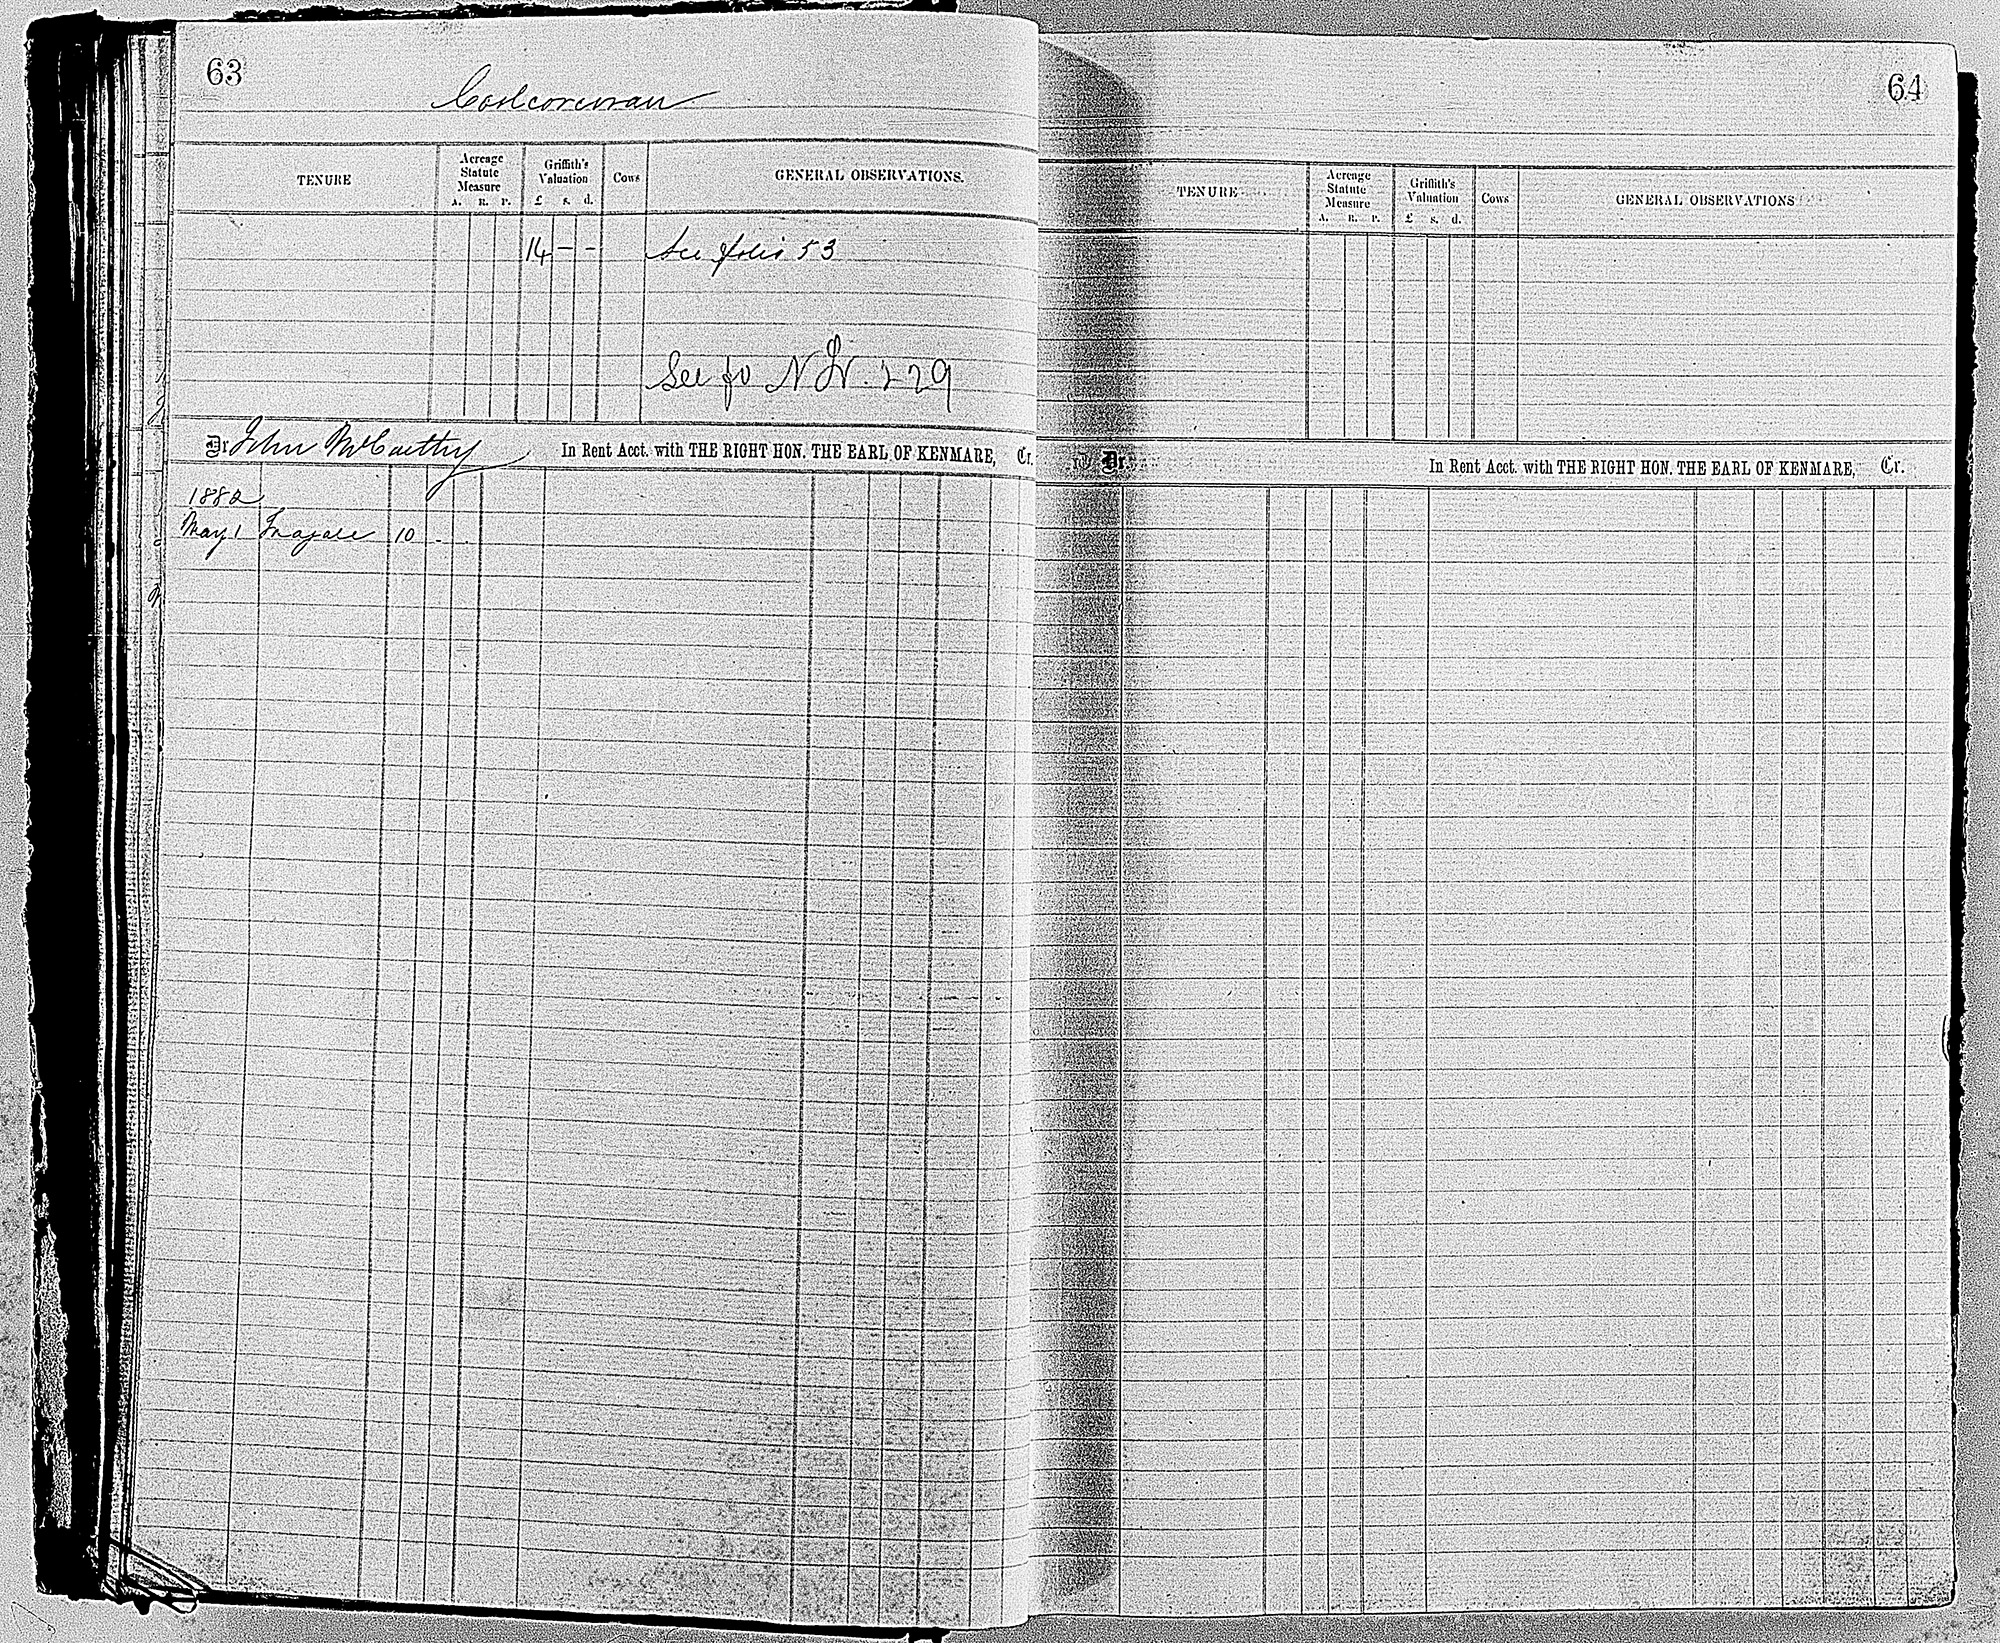 63
Coolcorcoran
TENURE
Acreage Statute Measure
A. R. P.
Griffith's Valuation
£ s. d.
Cows
GENERAL OBSERVATIONS.
14 – – See folio 53
See fo
229
Dr John McCarthy In Rent Acct. with THE RIGHT HON. THE EARL OF KENMARE, Cr.
1882
May 1 10 - -
64
TENURE
Acreage Statute Measure
A. R. P.
Griffith's Valuation
£ s. d.
Cows
GENERAL OBSERVATIONS
Dr. In Rent Acct. with THE RIGHT HON. THE EARL OF KENMARE, Cr.